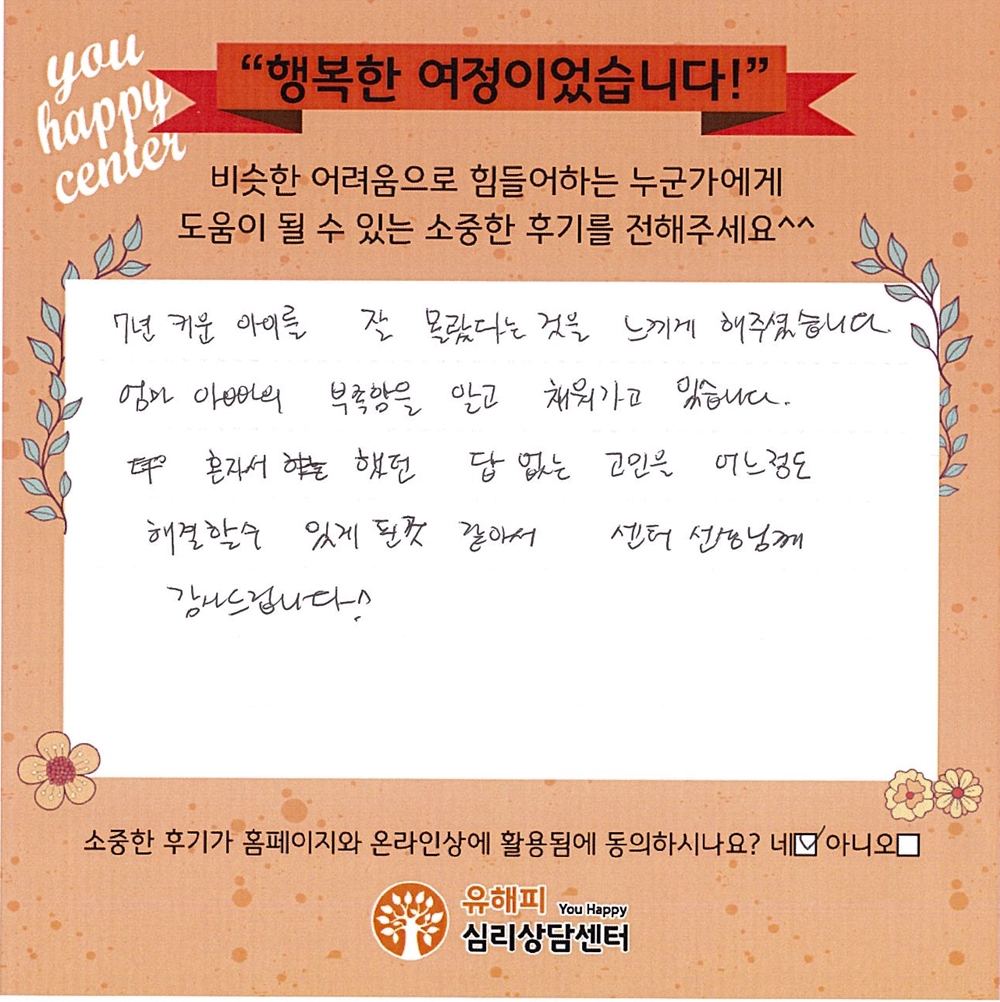 you
happy
center
“행복한 여정이었습니다!”
비슷한 어려움으로 힘들어하는 누군가에게
도움이 될 수 있는 소중한 후기를 전해주세요^^
7년 키운 아이를 잘 몰랐다는 것을 느끼게 해주셨습니다.
엄마 아빠의 부족함을 알고 채워가고 있습니다.
혼자서 했던 답 없는 고민을 어느정도
해결할수 있게 된것 같아서 센터 선생님께
감사드립니다!
소중한 후기가 홈페이지와 온라인상에 활용됨에 동의하시나요? 네☑ 아니오☐
유해피 You Happy
심리상담센터